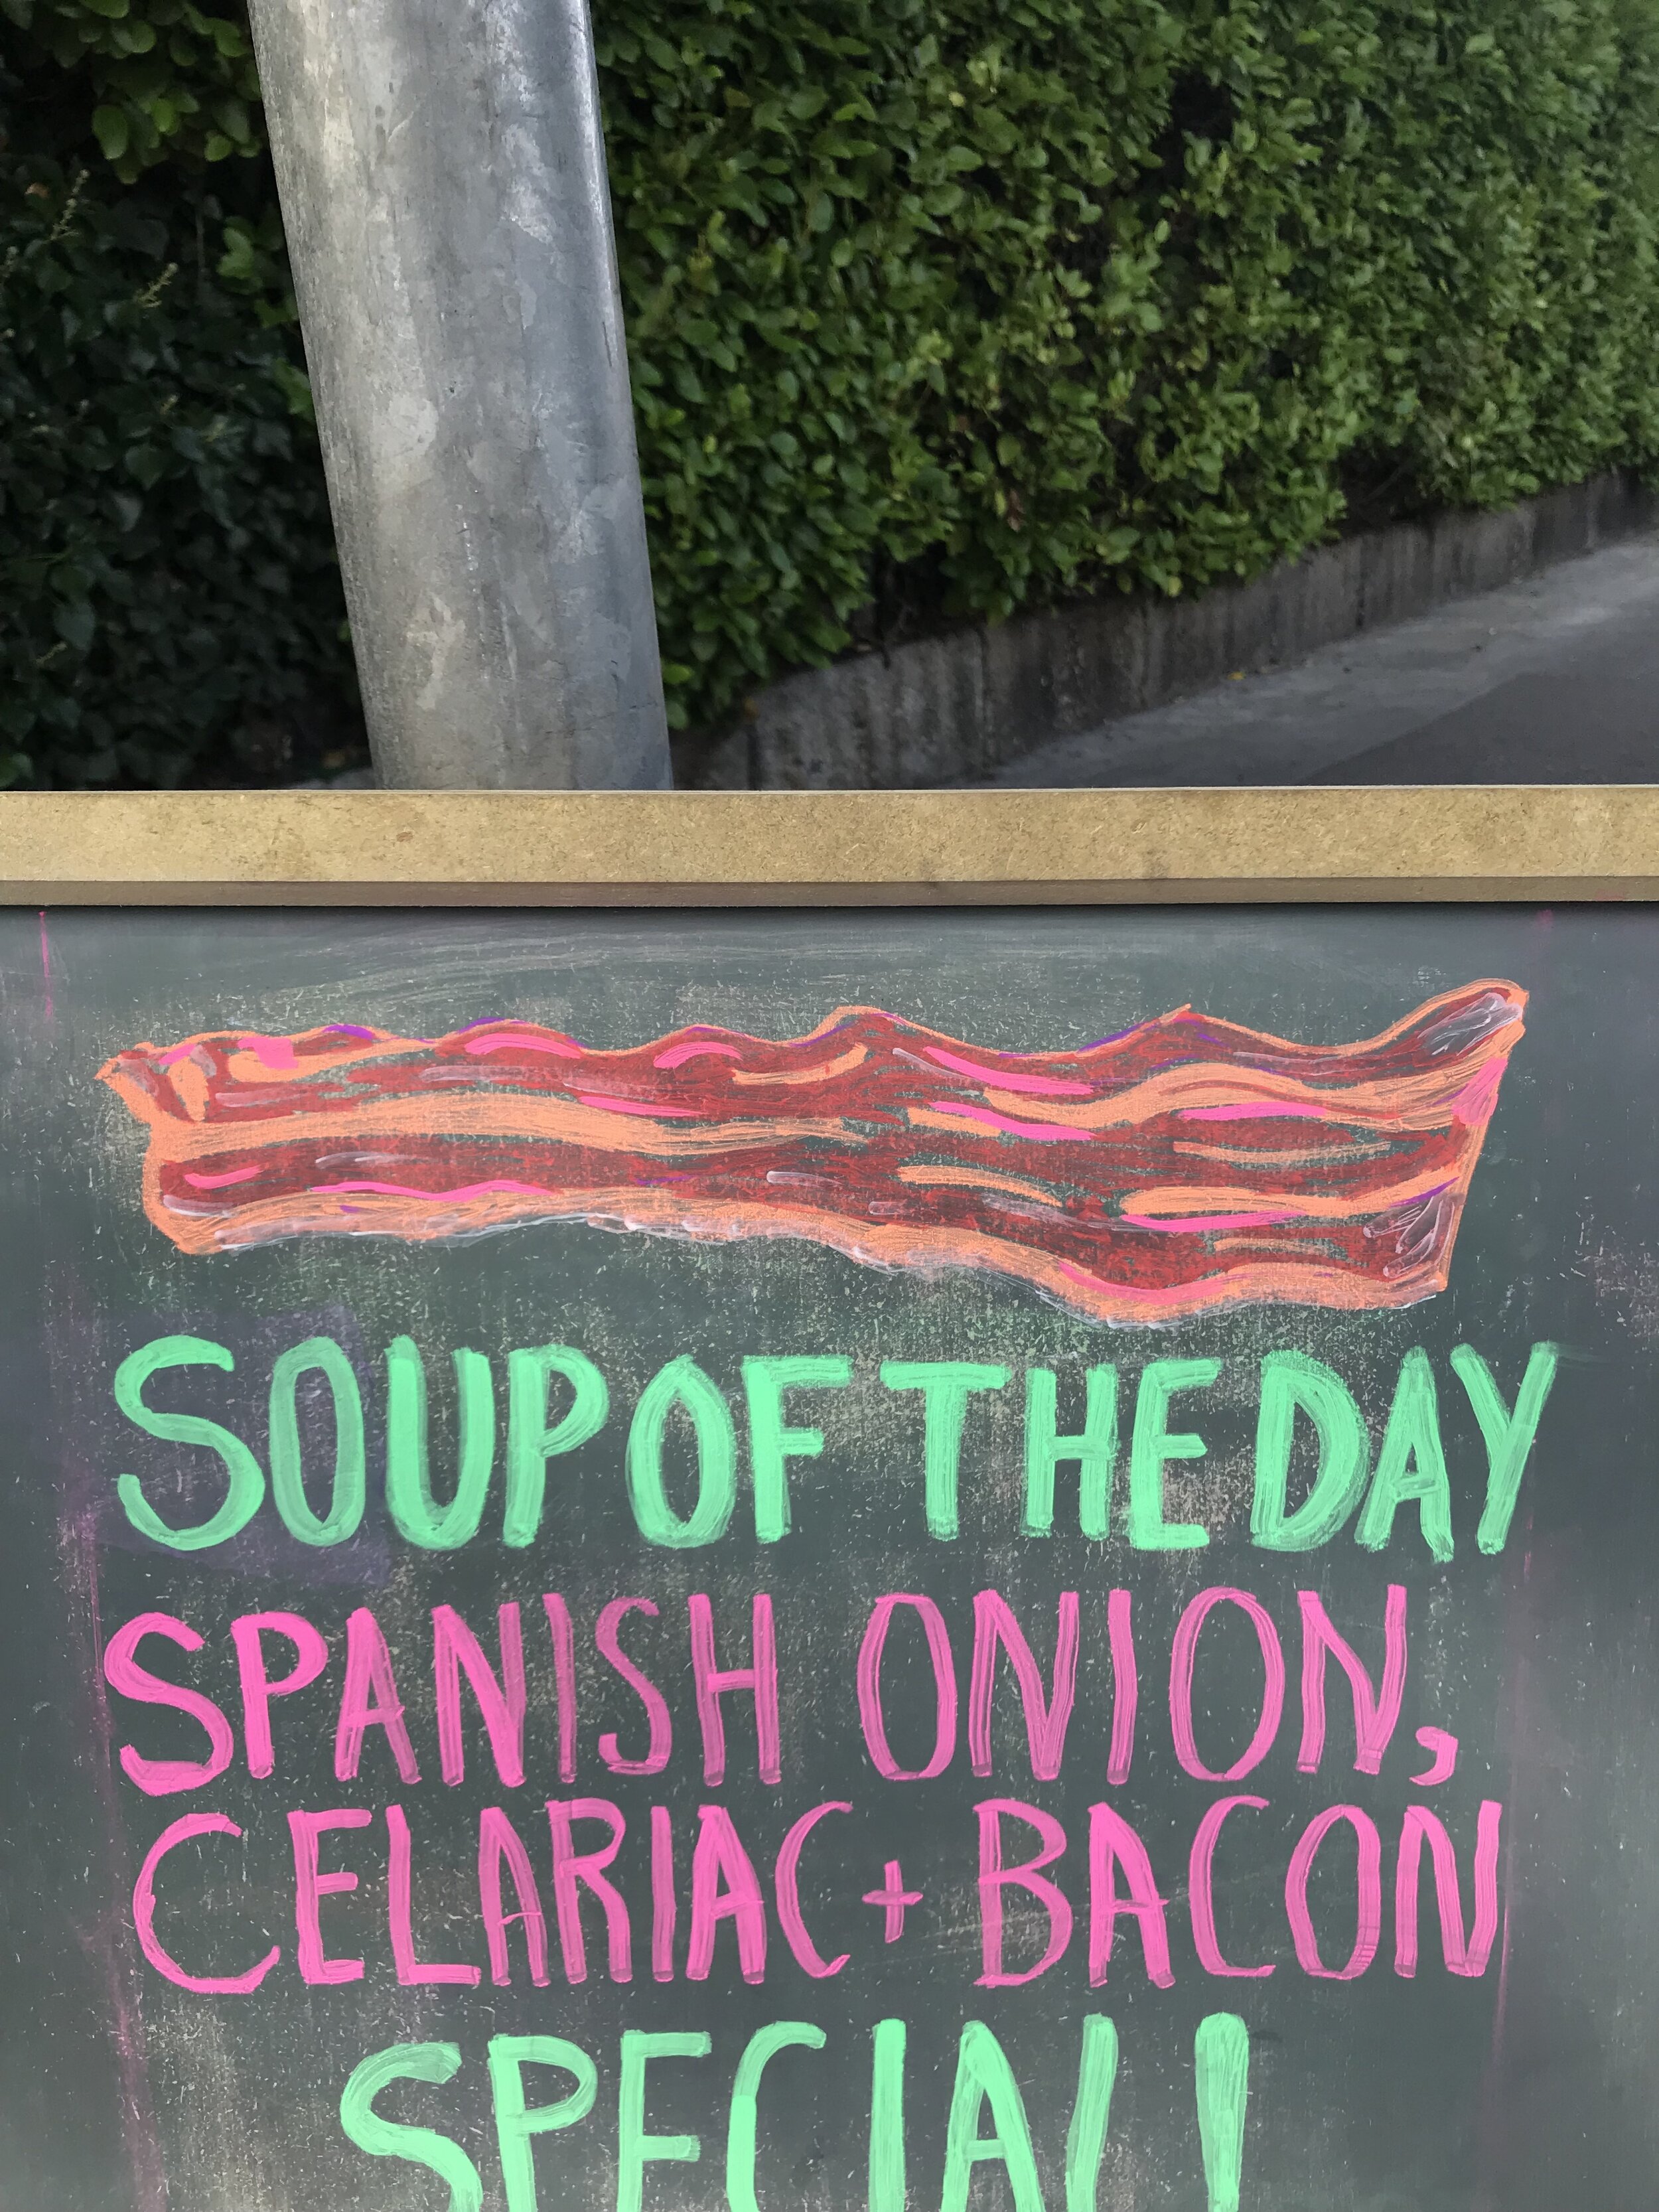 SOUP OF THE DAY
SPANISH ONION,
CELARIAC + BACON
SPECIAL!